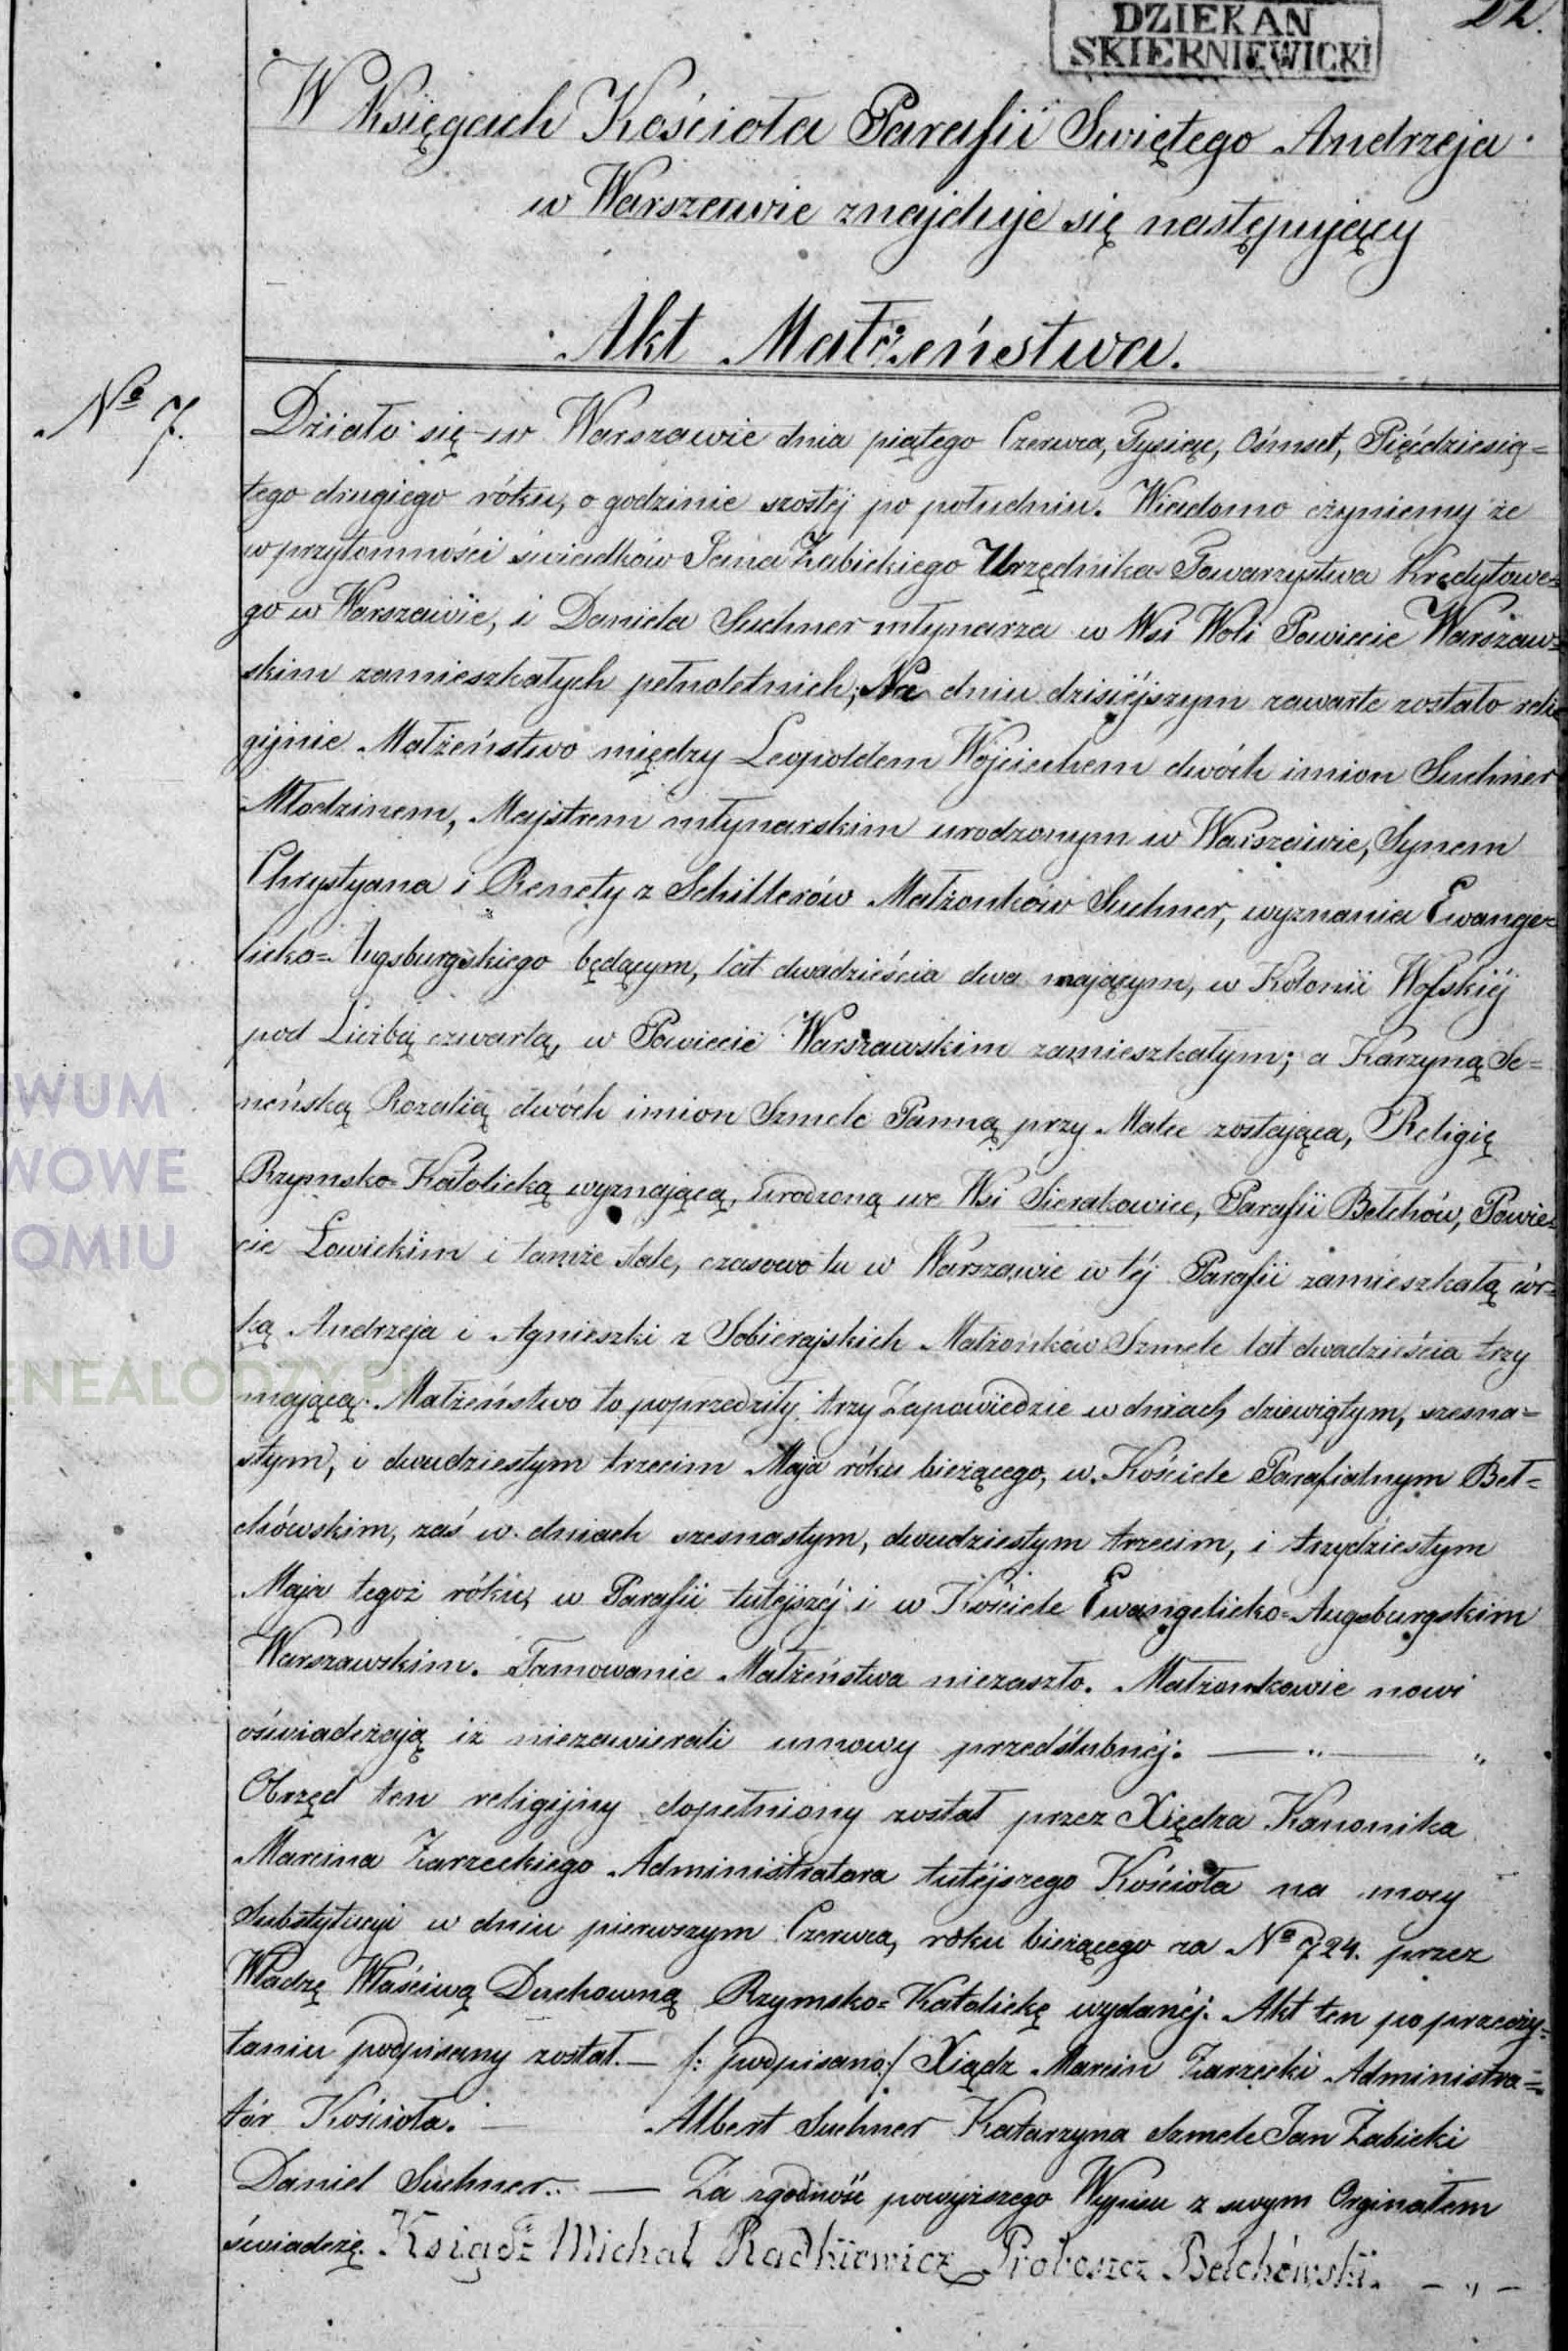 DZIEKAN
SKIERNIEWICKI
22.
W Księgach Kościoła Parafii Swiętego Andrzeja
w Warszawie znajduje się następujący
Akt Małżeństwa.
No 7.
Działo się w Warszawie dnia piątego Czerwca, Tysiąc, Ośmset, Pięćdziesią=
tego drugiego róku, o godzinie szostéj po południu. Wiadomo czyniemy że
w przytomności świadków Jana Żabickiego Urzędnika Towarzystwa Kredytowe=
go w Warszawie, i Daniela Suchner młynarza w Wsi Woli Powiecie Warszaw=
skim zamieszkałych pełnoletnich; Na dniu dzisiéjszym zawarte zostało reli=
gijnie Małżeństwo między Leopoldem Wojciechem dwóch imion Suchner
Młodzinem, Majstrem młynarskim urodzonym w Warszawie, Synem
Chrystyana i Renety z Schillerów Małżonków Suchner, wyznania Ewange=
licko=Augsburgskiego będącym, lat dwadzieścia dwa mającym, w Kolonii Wolskiéj
pod Liczbą czwartą, w Powiecie Warszawskim zamieszkałym; a Karzyną Se=
neńską Rozalią dwóch imion Szmele Panną przy Matce zostająca, Religię
Rzymsko=Katolicką wyznającą, urodzoną we Wsi Sierakowice, Parafii Bełchów, Powie=
cie Łowickim i tamże stale, czasowo tu w Warszawie w téj Parafii zamieszkałą cór=
ką Andrzeja i Agnieszki z Sobierajskich Małżonków Szmele lat dwadzieścia trzy
mającą. Małżeństwo to poprzedziły trzy Zapowiedzie w dniach dziewiątym, szesna=
stym, i dwudziestym trzecim Maja róku bieżącego, w Kościele Parafialnym Beł=
chówskim, zaś w dniach szesnastym, dwudziestym trzecim, i trzydziestym
Maja tegoż róku, w Parafii tutéjszéj i w Kościele Ewangelicko=Augsburgskim
Warszawskim. Tamowanie Małżeństwa niezaszło. Małżonkowie nowi
oświadczają iż niezawierali umowy przedślubnéj. — „ — „
Obrzęd ten religijny dopełniony został przez Xiędza Kanonika
Marcina Zarzeckiego Administratora tutéjszego Kościoła na mocy
Substytucyi w dniu pierwszym Czerwca, roku bieżącego za No 724. przez
Władzę Właściwą Duchowną Rzymsko=Katolickę wydanéj. Akt ten po przeczy=
taniu podpisany został. — /: podpisano:/ Xiądz Marcin Zarzecki Administra=
tór Kościoła. — Albert Suchner Katarzyna Szmele Jan Żabicki
Daniel Suchner. — Za zgodność powyższego Wypisu z swym Orginałem
świadczę. Ksiądz Michał Radkiewicz Proboszcz Bełchówski. — „ —
WUM
WOWE
OMIU
ENEALODZY.PL